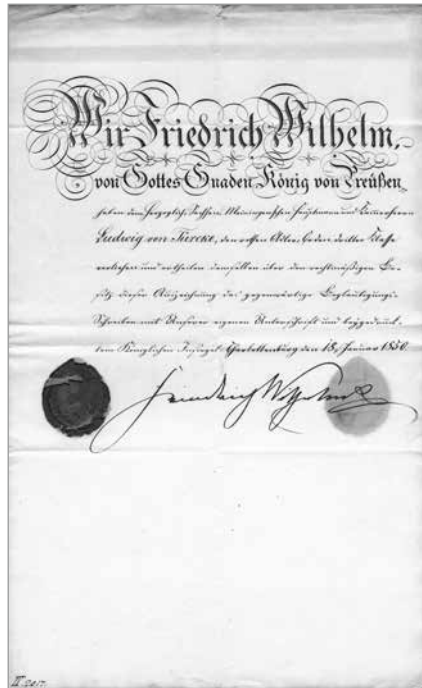 Wir Friedrich Wilhelm,
von Gottes Gnaden König von Preußen
haben dem Herzoglich Sachsen Meiningenschen Hauptmann und Kammerherrn
Ludwig von Türcke, den rothen Adler-Orden dritter Klasse
verliehen und ertheilen demselben über den rechtmäßigen Be-
sitz dieser Auszeichnung das gegenwärtige Beglaubigungs-
Schreiben mit Unserer eigenen Unterschrift und beygedruck-
tem Königlichen Insiegel. Charlottenburg den 18. Januar 1850
Friedrich Wilhelm
II